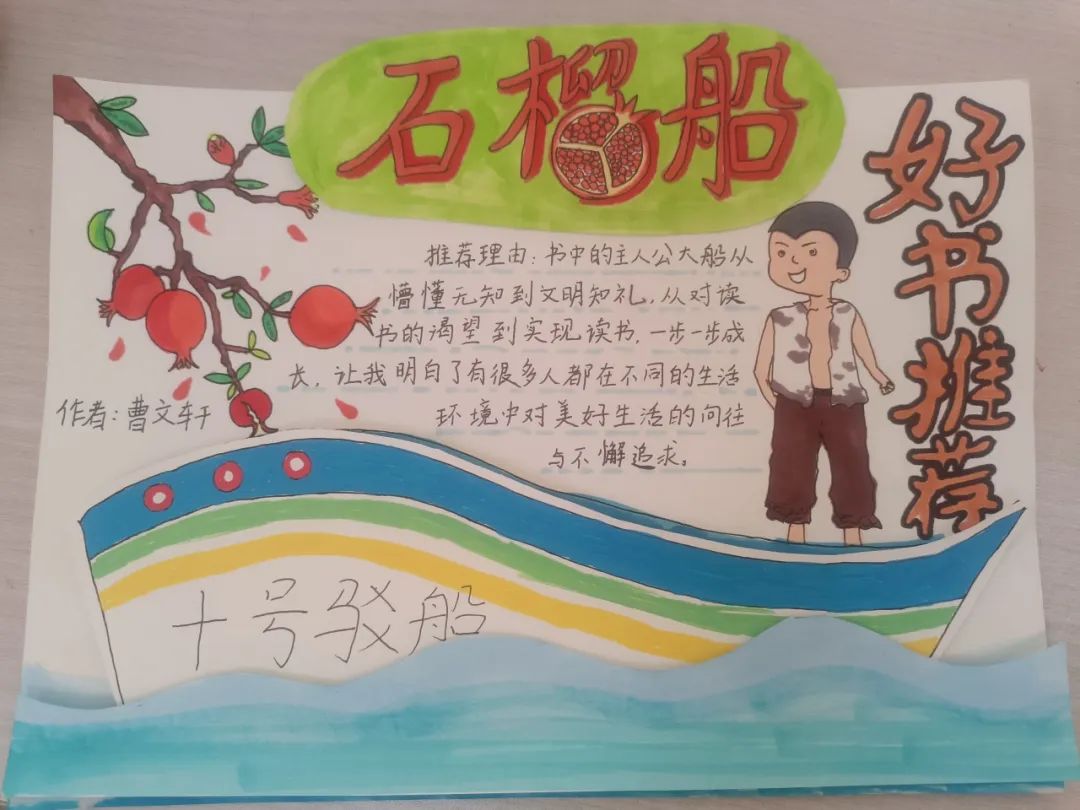 石榴船
好书推荐
推荐理由：书中的主人公大船从
懵懂无知到文明知礼，从对读
书的渴望到实现读书，一步一步成
长，让我明白了有很多人都在不同的生活
环境中对美好生活的向往
与不懈追求。
作者：曹文轩
十号驳船